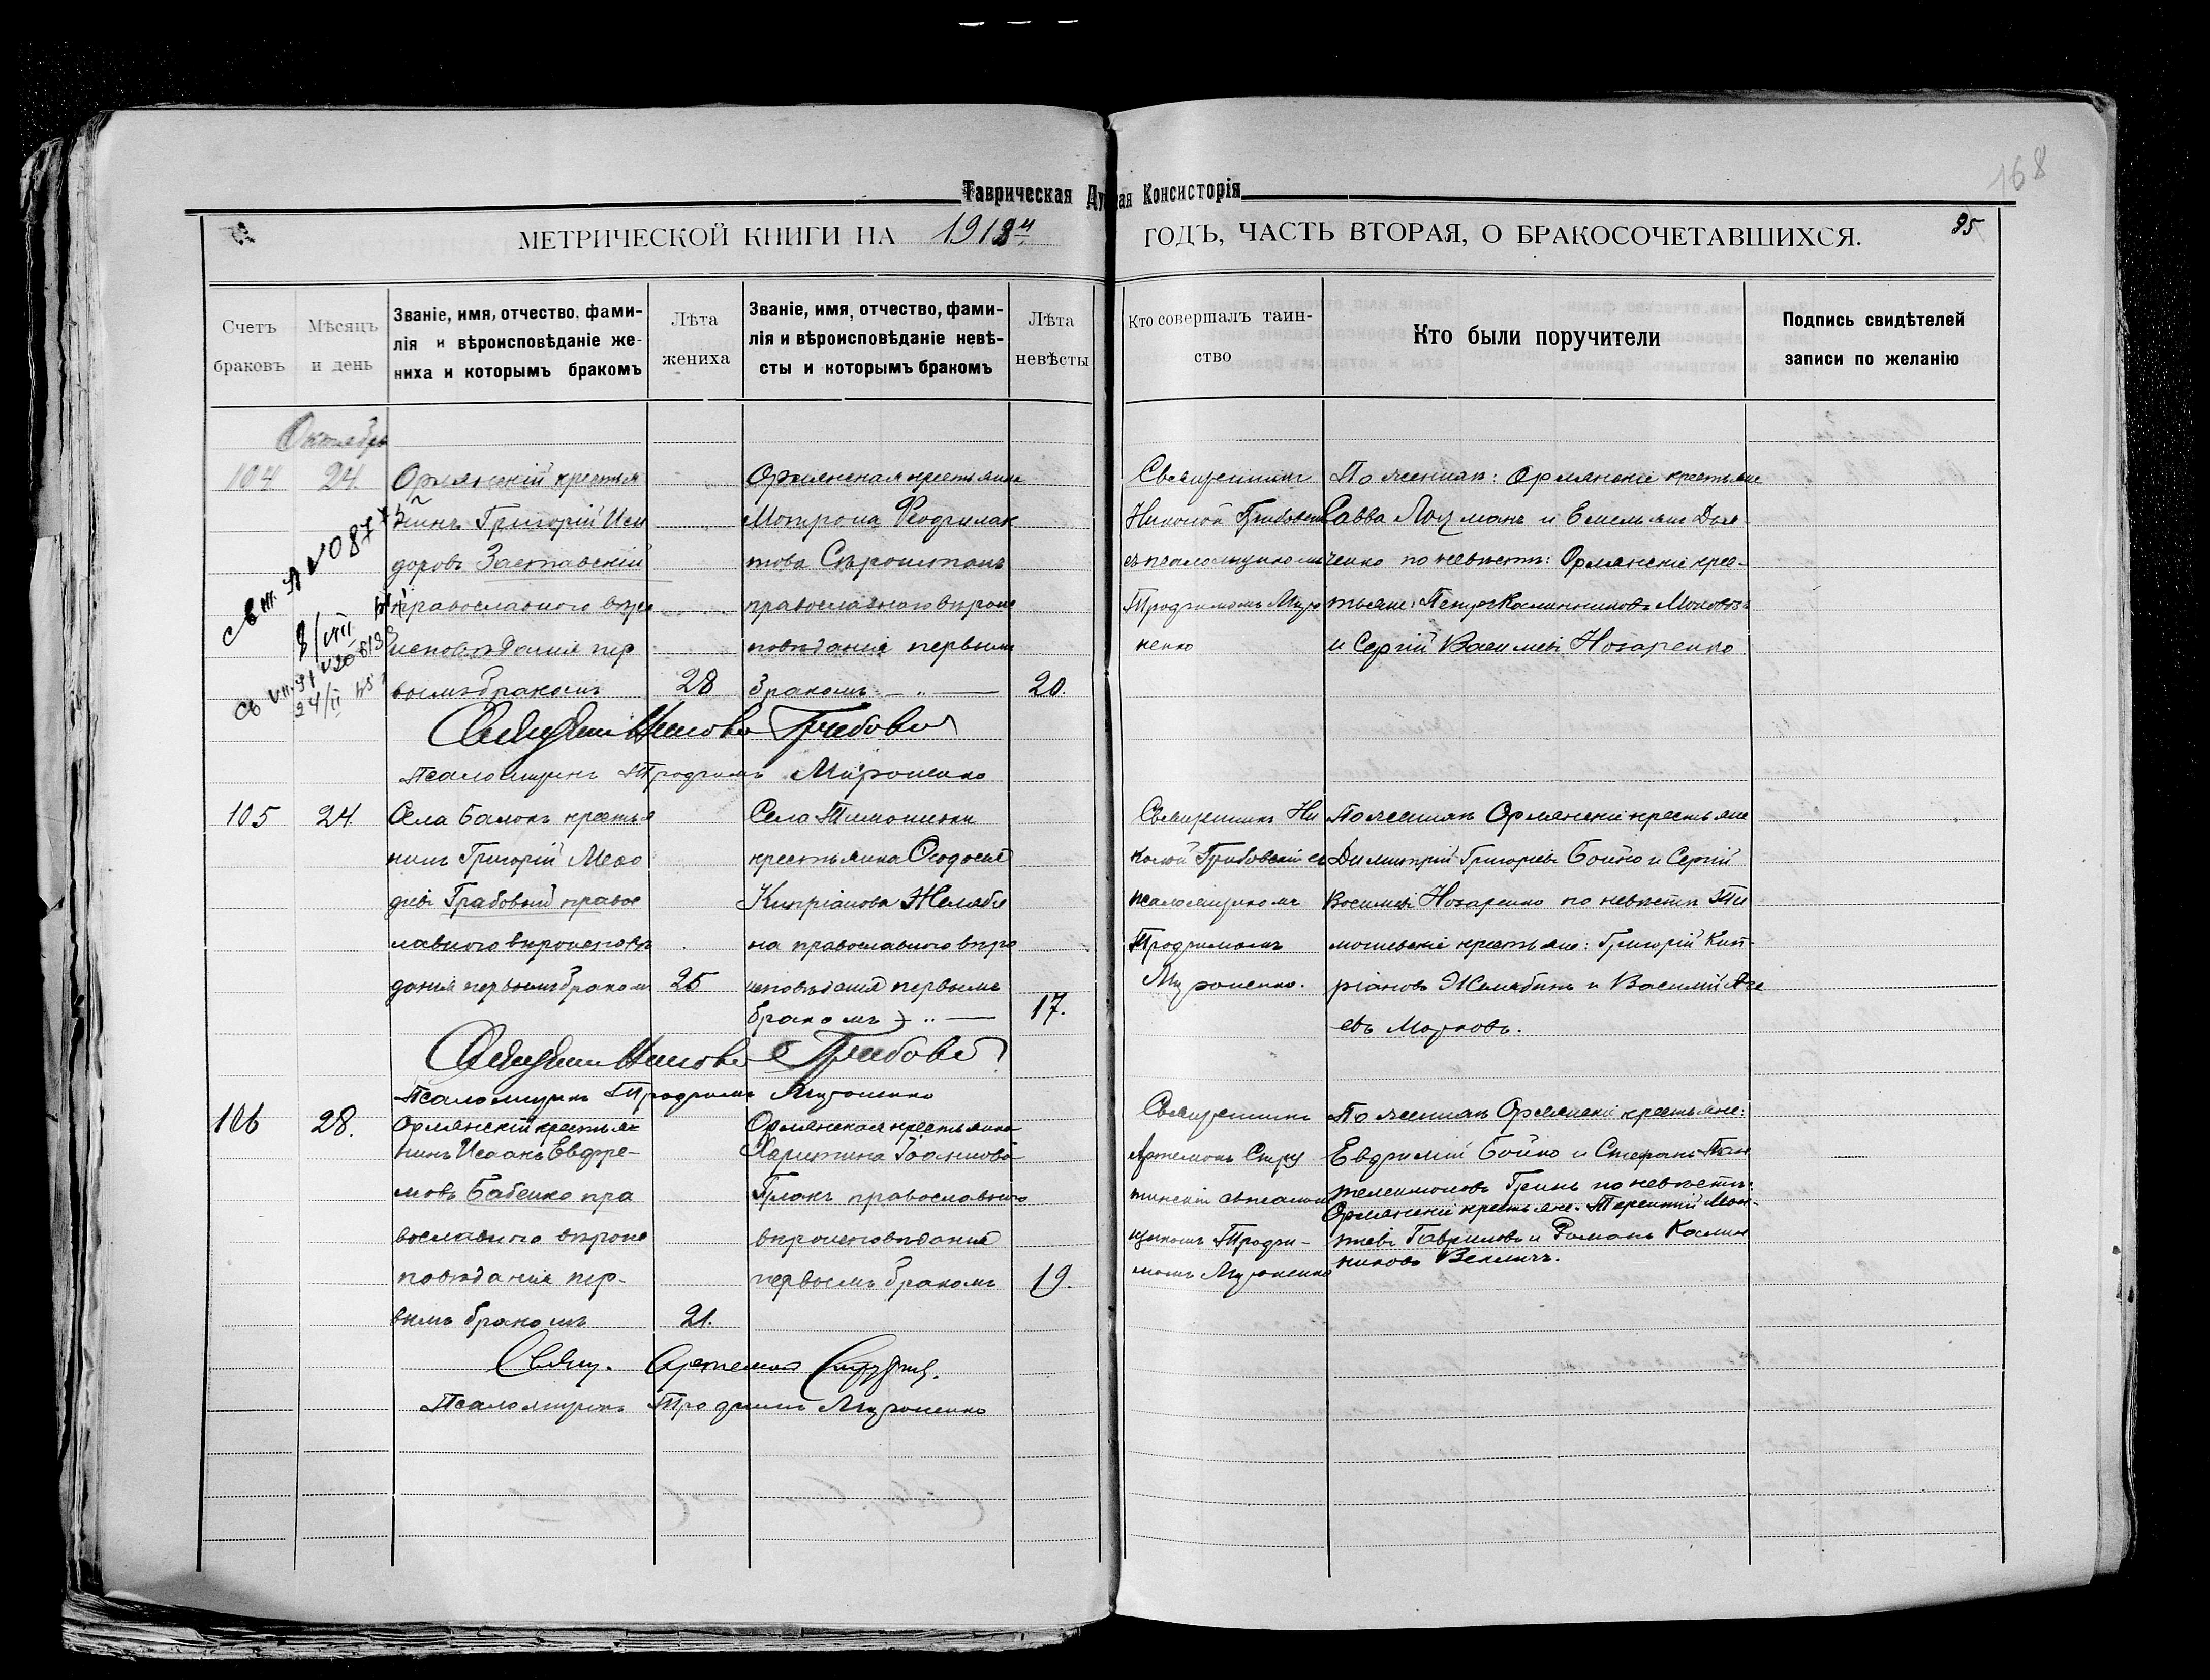 168
Таврическая Ду ая Консисторія
МЕТРИЧЕСКОЙ КНИГИ НА 1913й ГОДЪ, ЧАСТЬ ВТОРАЯ, О БРАКОСОЧЕТАВШИХСЯ. 95
Счетъ браковъ
Мѣсяцъ и день
Званіе, имя, отчество, фами-
лія и вѣроисповѣданіе же-
ниха и которымъ бракомъ
Лѣта
жениха
Званіе, имя, отчество, фами-
лія и вѣроисповѣданіе невѣ-
сты и которымъ бракомъ
Лѣта
невѣсты
Кто совершалъ таин-
ство
Кто были поручители
Подпись свидѣтелей
записи по желанію
Октябрь
104
24.
крестья
нинъ Григорій Иси
доровъ Заставскій
православнаго вѣро
исповѣданія пер
вымъ бракомъ
28
крестьянка
Мотрона Феофилак
това
православнаго вѣроис
повѣданія первымъ
бракомъ
20.
Священникъ
Николай Грибовскій
съ псаломщикомъ
Трофимомъ Миро
ненко
По женихѣ: крестьяне
Савва Лоцманъ и Емельянъ
ченко по невѣстѣ: крес-
тьяне: Петръ Калинниковъ
и Сергій Васильевъ Нагаренко
Священникъ Николай Грибовскій
Псаломщикъ Трофимъ Мироненко
105
24.
Села Балокъ крестья
нинъ Григорій Мефо
діевъ Грабовый правос
лавнаго вѣроисповѣ
данія первымъ бракомъ
25
Села Тимошевки
крестьянка Феодосія
Кипріанова Желяби
на православнаго вѣро
исповѣданія первымъ
бракомъ
17.
Священникъ Ни
колай Грибовскій съ
псаломщикомъ
Трофимомъ
Мироненко.
По женихѣ крестьяне
Димитрій Григорьевъ Бойко и Сергій
Васильевъ Нагаренко по невѣстѣ Ти
мошевскіе крестьяне: Григорій Кип-
ріановъ Желябинъ и Василій
евъ Марковъ.
Священникъ Николай Грибовскій
Псаломщикъ Трофимъ Мироненко
106
28.
крестья-
нинъ Исаакъ Евфре-
мовъ Бабенко пра
вославнаго вѣроис
повѣданія пер-
вымъ бракомъ
21.
крестьянка
Харитина Іоаннова
православнаго
вѣроисповѣданія
первымъ бракомъ
19.
Священникъ
Артемонъ Стру
тинскій съ псалом
щикомъ Трофи-
момъ Мироненко
По женихѣ крестьяне:
Евфимій Бойко и Стефанъ Пан
телеимоновъ Гринь по невѣстѣ:
крестьяне: Терентій Мат-
вѣевъ Гавриловъ и Романъ Калин
никовъ Величъ.
Свящ. Артемонъ Струтинск.
Псаломщикъ Трофимъ Мироненко